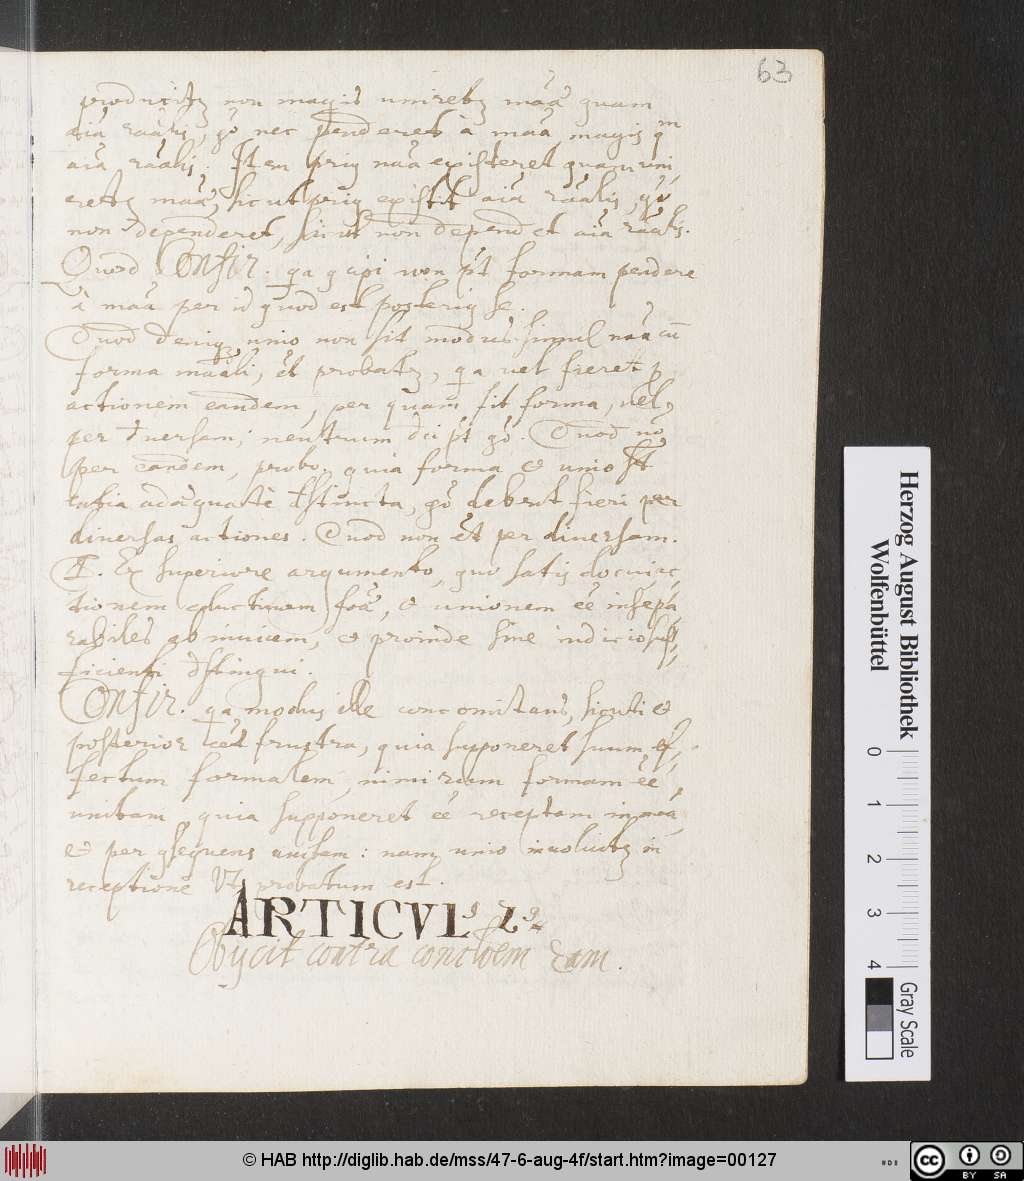 63
producitꝫ non magis uniretꝫ mãã quam
aiã raãlis, gº nec penderet à mãã magis qm
aiã raãlis. Item priꝰ naã existeret quam uni
retꝫ mãã, sicut priꝰ existit aiã raãlis, gº
non dependeret, sicut non depend et aiã raãlis.
Quod Confir. qa
non pt formam pendere
à mãã per id quod est posteriꝰ se.
Quod deniqꝫ unio non sit modus simul naã cũ
forma maãli, et probatꝫ, qa vel fieret p
actionem eandem, per quam fit forma, vel
per diversam; neutrum dici pt gº. Quod nõ
per eandem, probo, quia forma et unio st
totia adæquatè distincta, gº debent fieri per
diversas actiones. Quod non et per diversam.
Ex superiore argumento, quo satis docui ac
tionem eductivam foã, et unionem eê insepa
rabiles ab invicem, et proinde sine indicio suf
ficienti distingui.
Confir. qa modus ille concomitans, sicuti et
posterior
frustra, quia supponeret suum ef
fectum formalem, nimirum formam eê
unitam, quia supponeret eê receptam in mãã,
et per qsequens unitam: nam unio involvitꝫ in
receptione Vt probatum est.
ARTICVLꝰ 2ꝰ
Obijcit contra
2am.
Herzog August Bibliothek
Wolfenbüttel
0 1 2 3 4
Gray Scale
© HAB http://diglib.hab.de/mss/47-6-aug-4f/start.htm?image=00127
cc BY SA